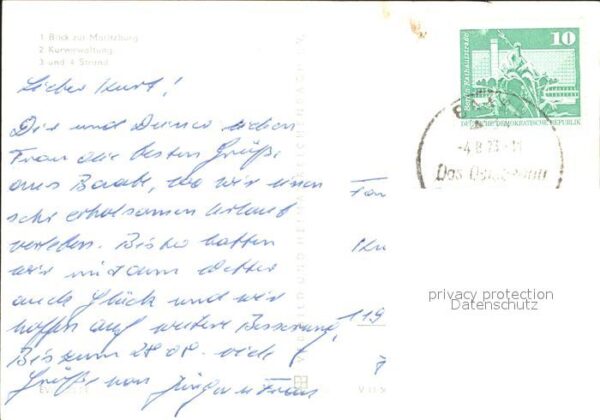 1 Blick zur Moritzburg
2 Kurverwaltung
3 und 4 Strand
Lieber Kurt!
Dir und Deiner lieben
Frau die besten Grüße
aus Baabe, wo wir einen
sehr erholsamen Urlaub
verleben. Bisher hatten
wir mit dem Wetter
auch Glück und wir
hoffen auf weitere Besserung.
Bis zum 28.08. viele
Grüße von Jürgen u Frau
10
Berlin, Rathausstraße
DEUTSCHE DEMOKRATISCHE REPUBLIK
-4.8.73
Das
119
privacy protection
Datenschutz